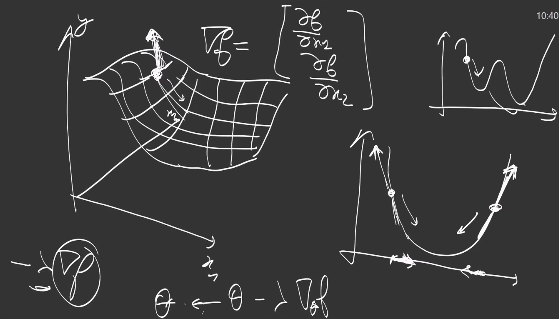 10:40
y
∇f = [ ∂f/∂x₁
∂f/∂x₂ ]
x₂
x₁
-λ∇f
θ ← θ - λ∇f